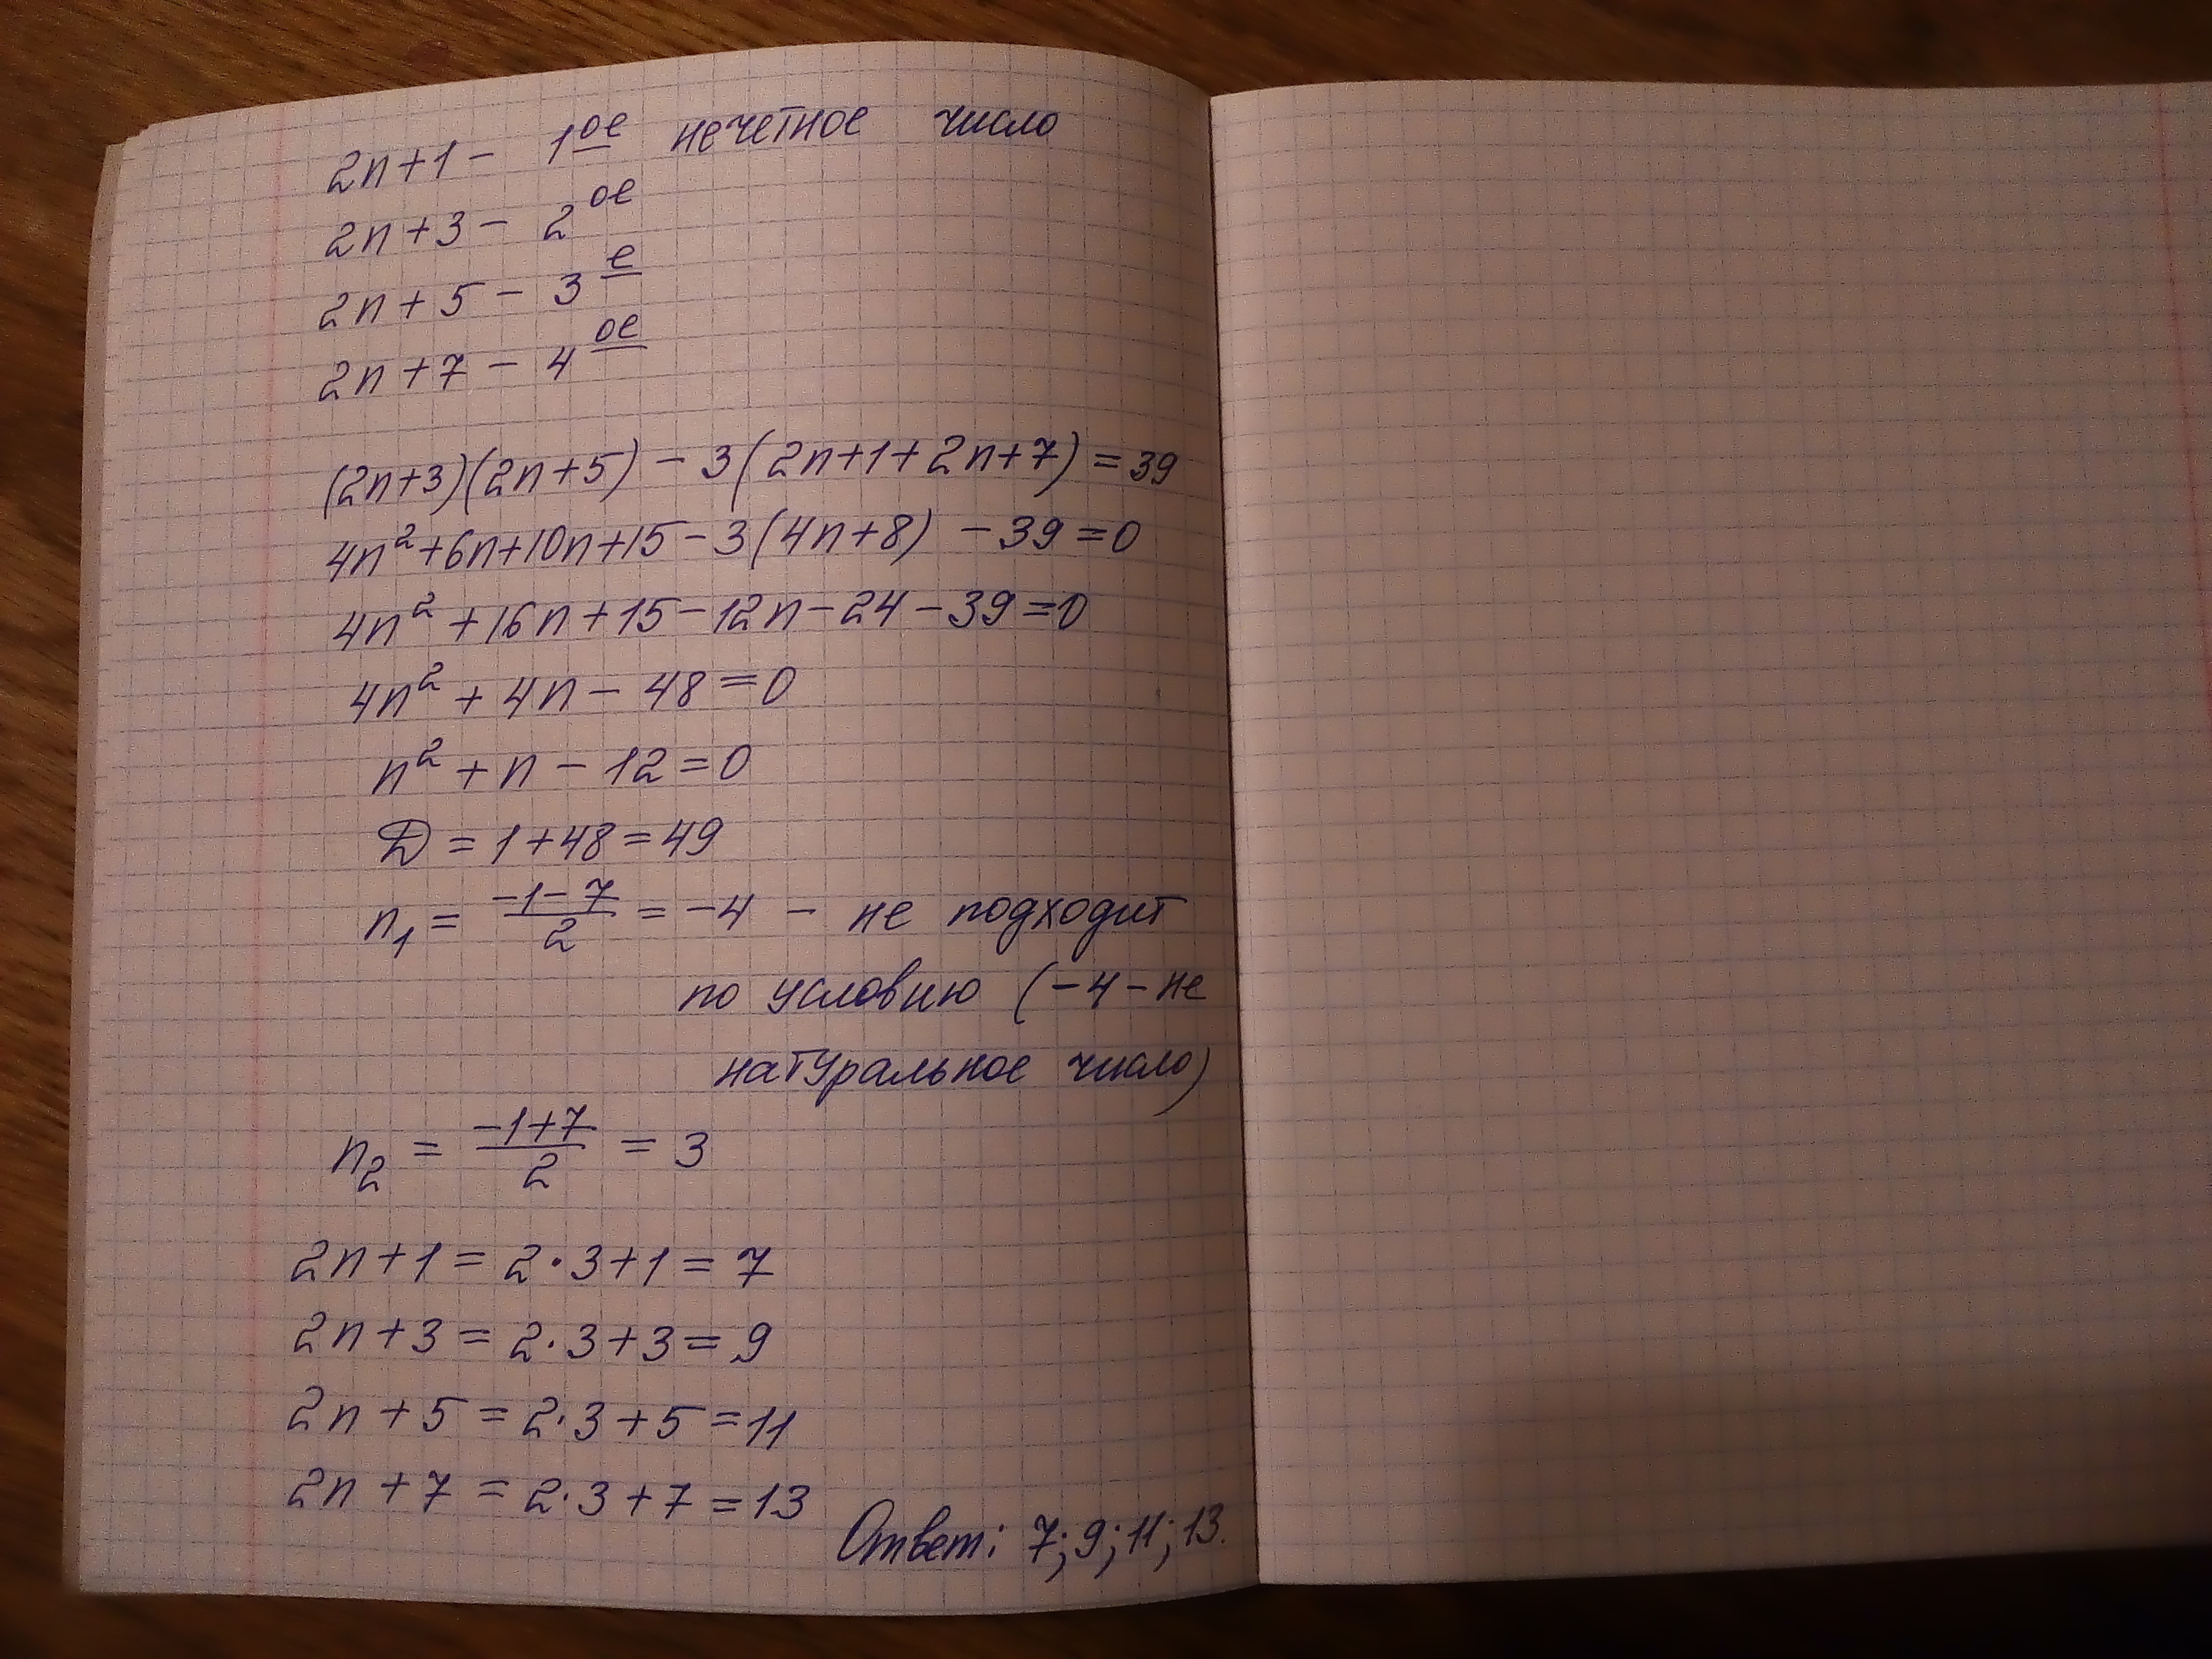 2n+1 - 1ое нечетное число
2n+3 - 2ое
2n+5 - 3е
2n+7 - 4ое
(2n+3)(2n+5) - 3(2n+1+2n+7) = 39
4n²+6n+10n+15-3(4n+8) -39=0
4n²+16n+15-12n-24-39=0
4n²+4n-48=0
n²+n-12=0
D=1+48=49
n₁ = (-1-7)/2 = -4 - не подходит
по условию (-4 - не
натуральное число)
n₂ = (-1+7)/2 = 3
2n+1=2·3+1=7
2n+3=2·3+3=9
2n+5=2·3+5=11
2n+7=2·3+7=13
Ответ: 7; 9; 11; 13.